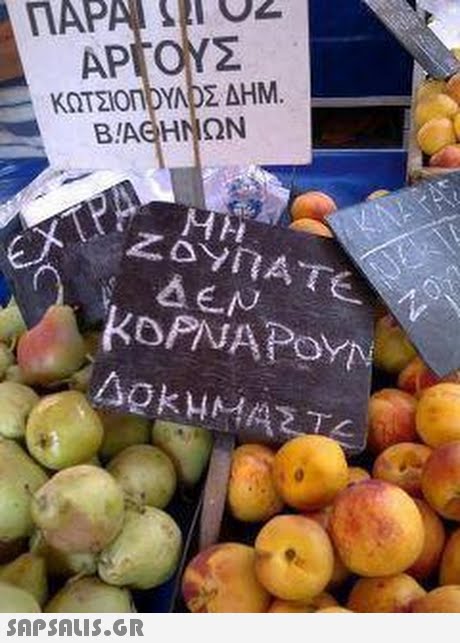 ΠΑΡΑΓΩΓΟΣ
ΑΡΓΟΥΣ
ΚΩΤΣΙΟΠΟΥΛΟΣ ΔΗΜ.
Β.!ΑΘΗΝΩΝ
ΕΧΤΡΑ
2
ΜΗ
ΖΟΥΠΑΤΕ
ΔΕΝ
ΚΟΡΝΑΡΟΥΝ
ΔΟΚΗΜΑΣΤΕ
SAPSALIS.GR